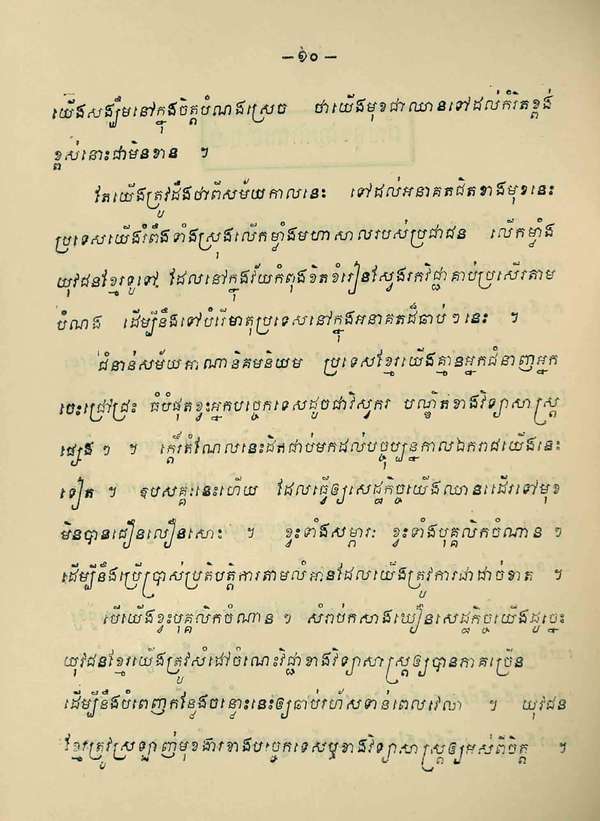 — ១០ —
យើងសង្ឃឹមនៅក្នុងចិត្តបំណងស្រេច ថាយើងមុខជាឈានទៅដល់កំរិតខ្ពង់
ខ្ពស់នោះជាមិនខាន ។
តែយើងត្រូវដឹងថាពីសម័យកាលនេះ ទៅដល់អនាគតជិតខាងមុខនេះ
ប្រទេសយើងរំពឹងទាំងស្រុងលើកម្លាំងមហាសាលរបស់ប្រជាជន លើកម្លាំង
យុវជនខ្មែរទូទៅ ដែលនៅក្នុងវ័យកំពុងខិតខំរៀនស្វែងរកវិជ្ជាគាប់ប្រសើរតាម
បំណង ដើម្បីនឹងទៅបំរើមាតុប្រទេសនៅក្នុងអនាគតដ៏ឆាប់ៗនេះ ។
ជំនាន់សម័យអាណានិគមនិយម ប្រទេសខ្មែរយើងគ្មានអ្នកជំនាញអ្នក
ចេះជ្រៅជ្រះ ធំបំផុតខ្វះអ្នកបច្ចេកទេសដូចជាវិស្វករ បណ្ឌិតខាងវិទ្យាសាស្ត្រ
ផ្សេងៗ ។ ក្ដើរតំណែលនេះដិតជាប់មកដល់បច្ចុប្បន្នកាលឯករាជយើងនេះ
ទៀត ។ ឧបសគ្គនេះហើយ ដែលធ្វើឲ្យសេដ្ឋកិច្ចយើងឈានដើរទៅមុខ
មិនបានជឿនលឿនសោះ ។ ខ្វះទាំងសម្ភារៈ ខ្វះទាំងបុគ្គលិកចំណានៗ
ដើម្បីនឹងប្រើប្រាស់ប្រតិបត្តិការតាមលំអានដែលយើងត្រូវការជាដាច់ខាត ។
បើយើងខ្វះបុគ្គលិកចំណានៗ សំរាប់កសាងឃឿនសេដ្ឋកិច្ចយើងដូច្នេះ
យុវជនខ្មែរយើងត្រូវសំដៅចំណេះវិជ្ជាខាងវិទ្យាសាស្ត្រឲ្យបានភាគច្រើន
ដើម្បីនឹងបំពេញកន្លែងចន្លោះនេះឲ្យឆាប់រហ័សទាន់ពេលវេលា ។ យុវជន
ខ្មែរត្រូវស្រឡាញ់មុខងារខាងបច្ចេកទេសឬខាងវិទ្យាសាស្ត្រឲ្យអស់ពីចិត្ត ។